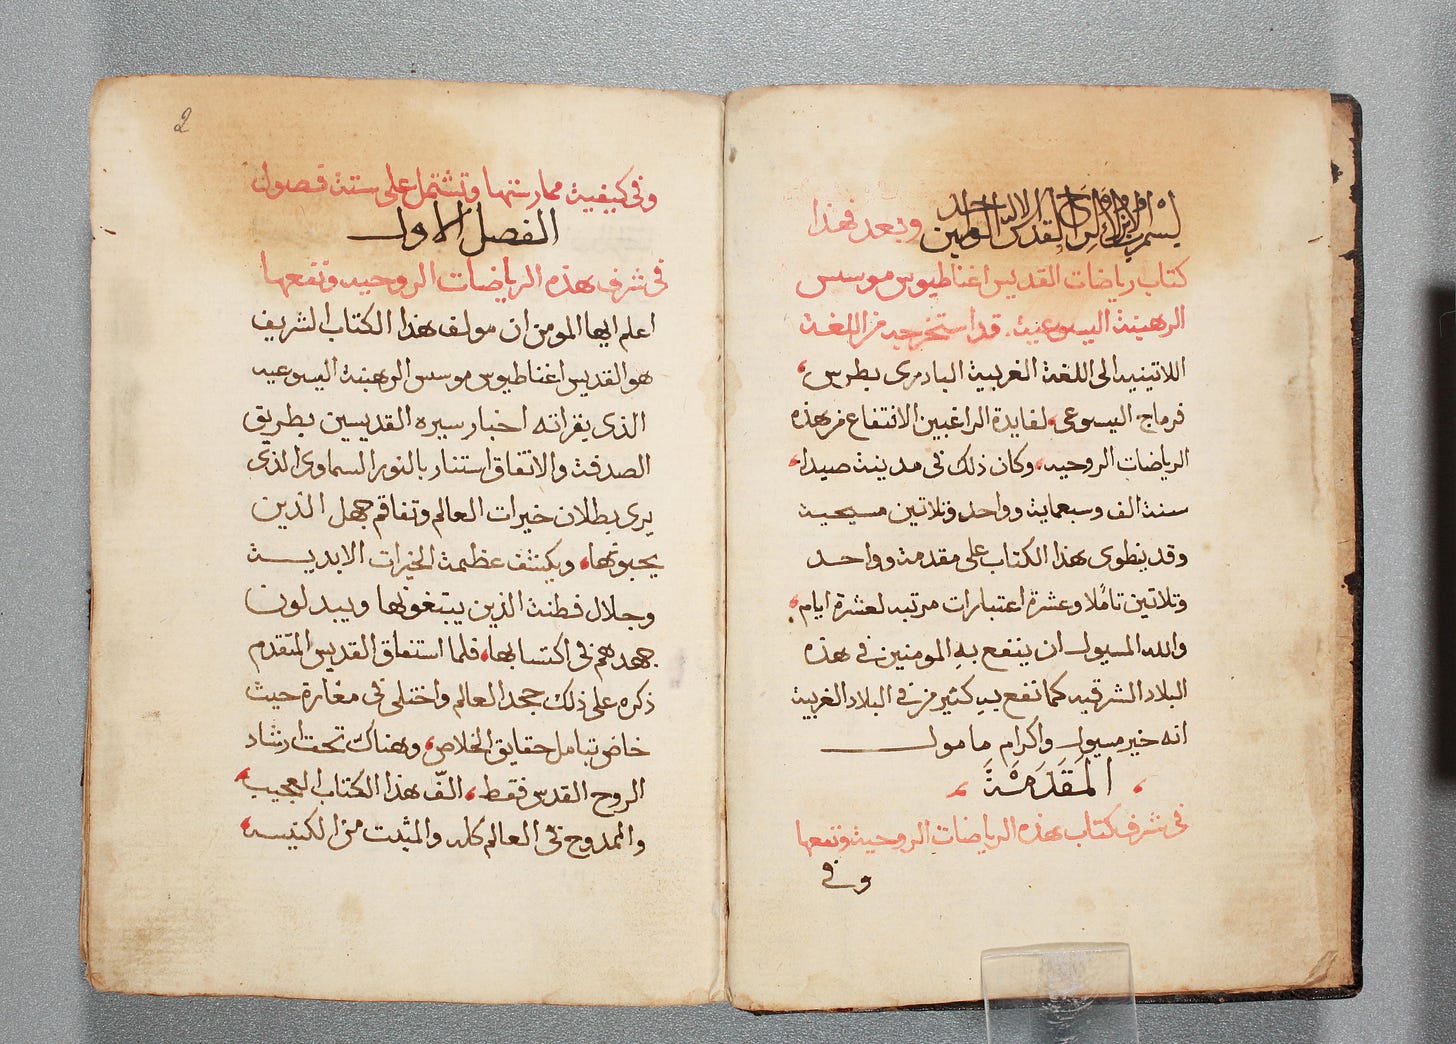 بسم الاب والابن والروح القدس الاله الواحد امين وبعد فهذا
كتاب رياضات القديس اغناطيوس موسس
الرهبنة اليسوعية. قد استخرجه من اللغة
اللاتينيه الى اللغة العربية البادري بطرس
فرماج اليسوعي، لفايدة الراغبين الانتفاع من هذه
الرياضات الروحيه، وكان ذلك في مدينة صيدا،
سنة الف وسبعماية وواحد وتلاتين مسيحية
وقد ينطوى هذا الكتاب على مقدمة وواحد
وتلاتين تاملا وعشرة اعتبارات مرتبه لعشرة ايام،
والله المسيول ان ينفع به المومنين في هذه
البلاد الشرقيه كما نفع به كتير من في البلاد الغربية
انه خير مسيول واكرام مامول
المَقدَمَة
في شرف كتاب هذه الرياضات الروحية ونفعها
وفي
2
وفي كيفية ممارستها وتشتمل على ستة فصول
الفصل الاول
في شرف هذه الرياضات الروحيه ونفعها
اعلم ايها المومن ان مولف هذا الكتاب الشريف
هو القديس اغناطيوس موسس الرهبنة اليسوعيه
الذى بقراته اخبار سيره القديسين بطريق
الصدفة والاتفاق استنار بالنور السماوى الذى
يرى بطلان خيرات العالم وتفاقم جهل الذين
يحبونها، ويكشف عظمة الخيرات الابدية
وجلال فطنة الذين يبتغونها ويبدلون
جهدهم في اكتسابها، فلما استفاق القديس المتقدم
ذكره على ذلك جحد العالم واختلى في مغارة حيث
خاض بتامل حقايق الخلاص، وهناك تحت ارشاد
الروح القدس فقط، الّف هذا الكتاب العجيب،
والممدوح في العالم كله والمثبت من الكنيسه،